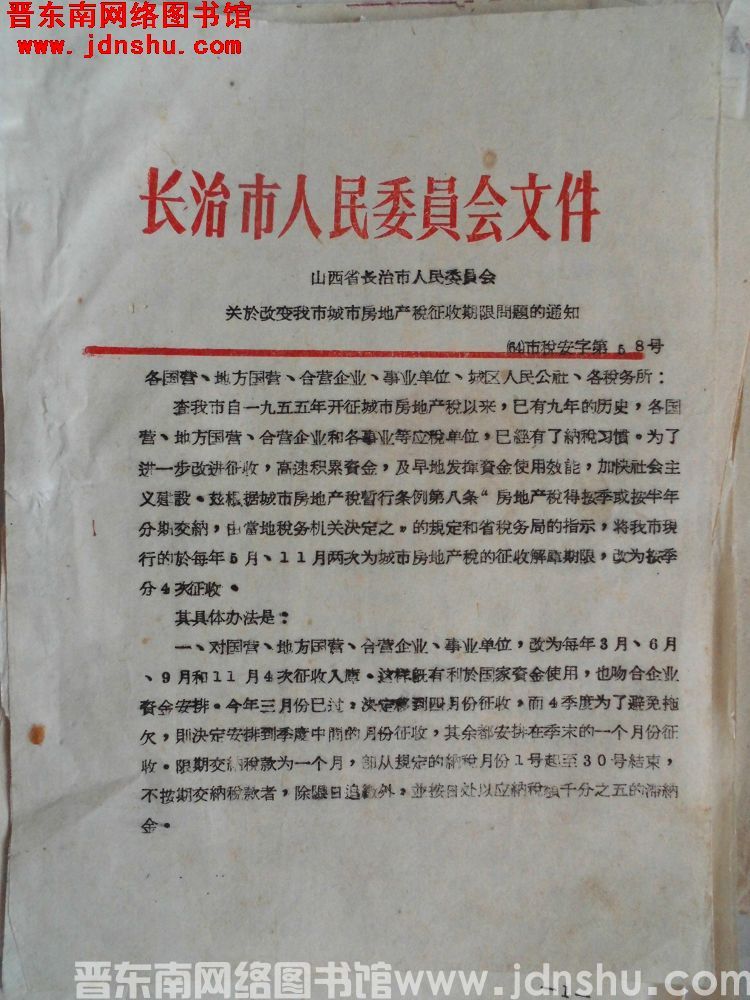 晋东南网络图书馆
www.jdnshu.com
长治市人民委員会文件
山西省长治市人民委員会
关於改变我市城市房地产稅征收期限問題的通知
(64)市稅安字第58号
各国营、地方国营、合营企业、事业单位、城区人民公社、各稅务所：
查我市自一九五五年开征城市房地产稅以来，已有九年的历史，各国
营、地方国营、合营企业和各事业等应稅单位，已經有了納稅习慣。为了
进一步改进征收，高速积累資金，及早地发挥資金使用效能，加快社会主
义建設。兹根据城市房地产稅暂行条例第八条“房地产稅得按季或按半年
分期交納，由當地稅务机关决定之”的規定和省稅务局的指示，将我市現
行的於每年5月、11月两次为城市房地产稅的征收解繳期限，改为按季
分4次征收。
其具体办法是：
一、对国营、地方国营、合营企业、事业单位，改为每年3月、6月
、9月和11月4次征收入庫。这样既有利於国家資金使用，也吻合企业
資金安排。今年三月份已过，决定移到四月份征收，而4季度为了避免拖
欠，則决定安排到季度中間的月份征收，其余都安排在季末的一个月份征
收。限期交納稅款为一个月，即从規定的納稅月份1号起至30号結束，
不按期交納稅款者，除限日追繳外，並按日处以应納稅額千分之五的滞納
金。
—1—
晋东南网络图书馆www.jdnshu.com